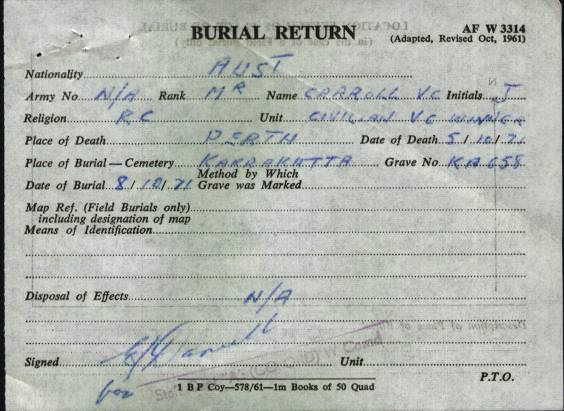 BURIAL RETURN
AF W 3314
(Adapted, Revised Oct, 1961)
Nationality AUST
Army No N/A Rank MR Name CARROLL VC Initials J
Religion RC Unit CIVILIAN VC WINNER
Place of Death PERTH Date of Death 5/10/71
Place of Burial — Cemetery KARRAKATTA Grave No KA 658
Date of Burial 8/10/71 Method by Which Grave was Marked
Map Ref. (Field Burials only)
including designation of map
Means of Identification
Disposal of Effects N/A
Signed Unit
for
P.T.O.
1 B P Coy—578/61—1m Books of 50 Quad